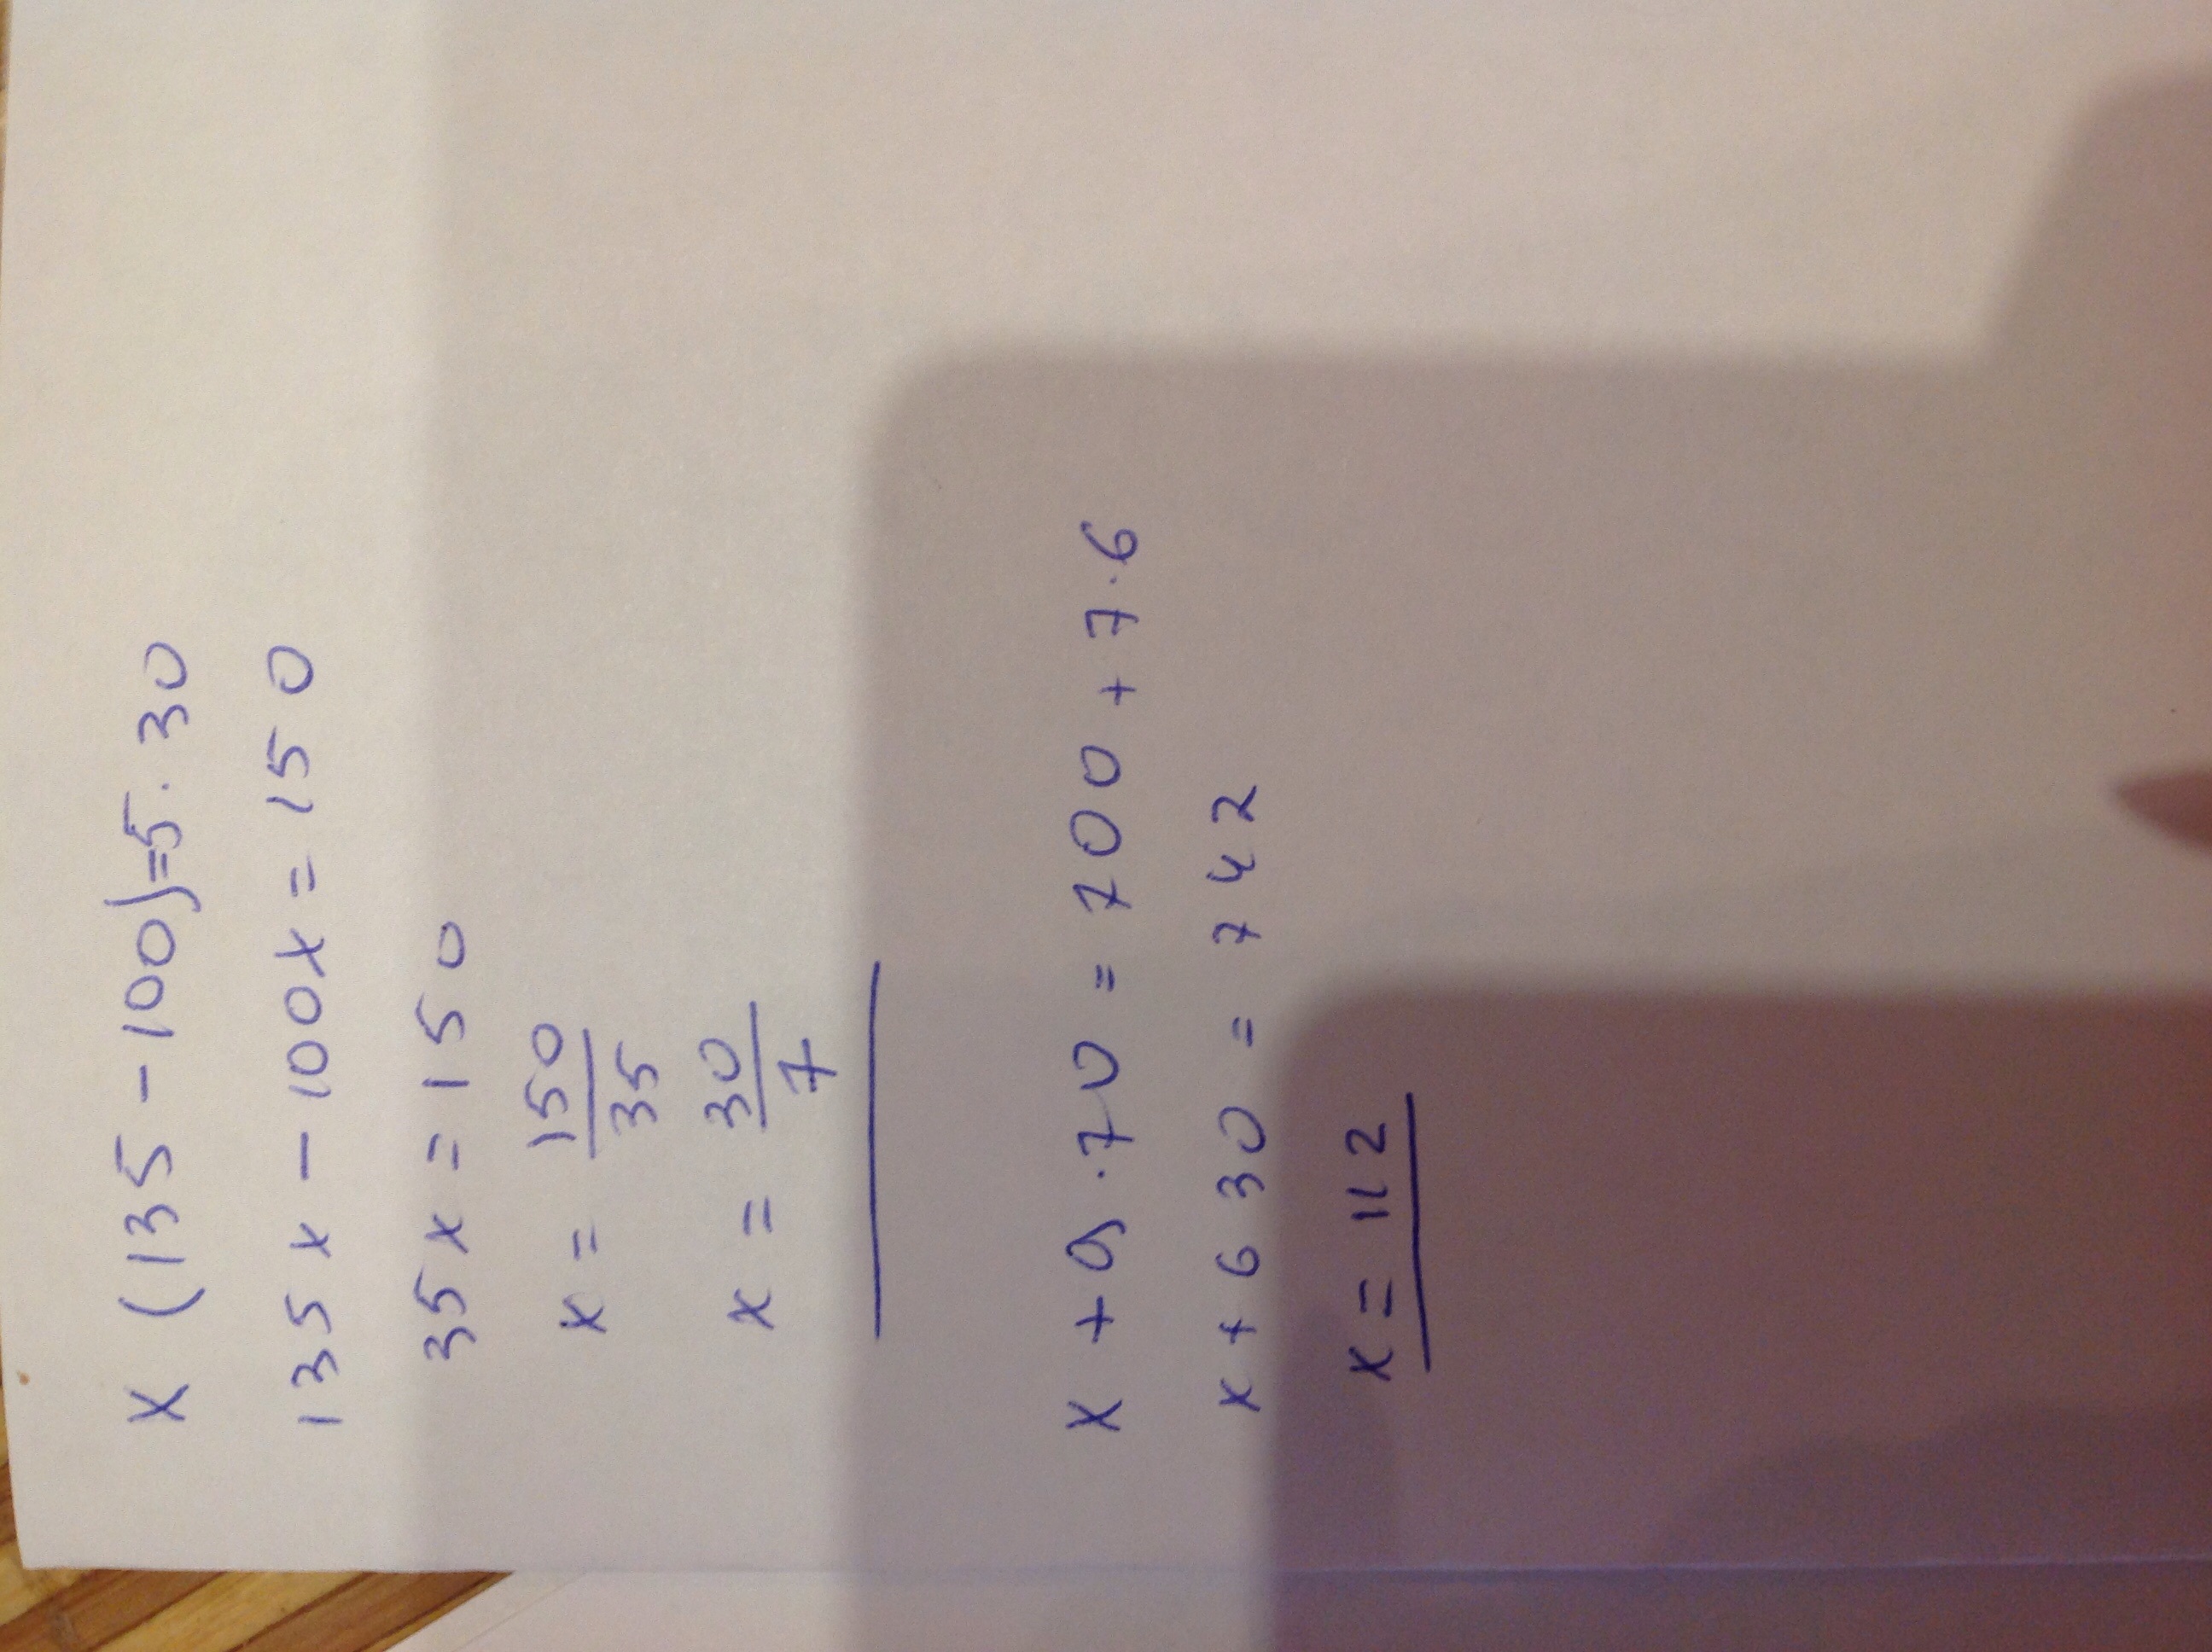 x (135 - 100) = 5 . 30
135 x - 100 x = 150
35 x = 150
x = 150/35
x = 30/7
x + 9 . 70 = 700 + 7 . 6
x + 630 = 742
x = 112